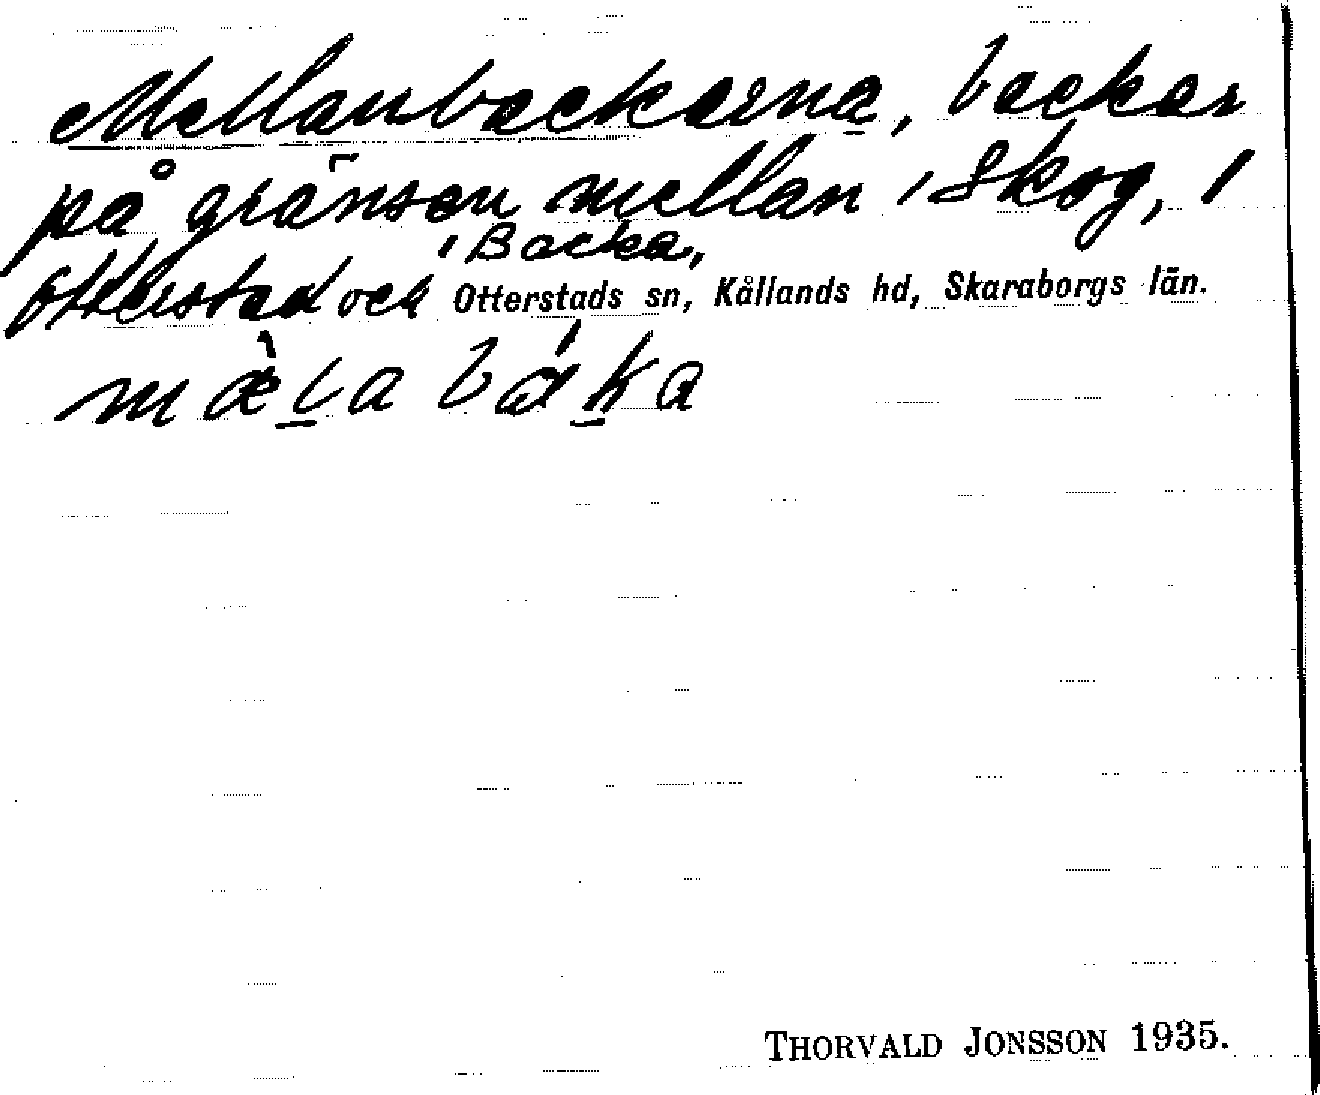 Mellanbackarna, backar
på gränsen mellan 1 Skog, 1
Otterstad och 1 Backa,
Otterstads sn, Kållands hd, Skaraborgs län.
mæ̀l̲a bák̲a
THORVALD JONSSON 1935.